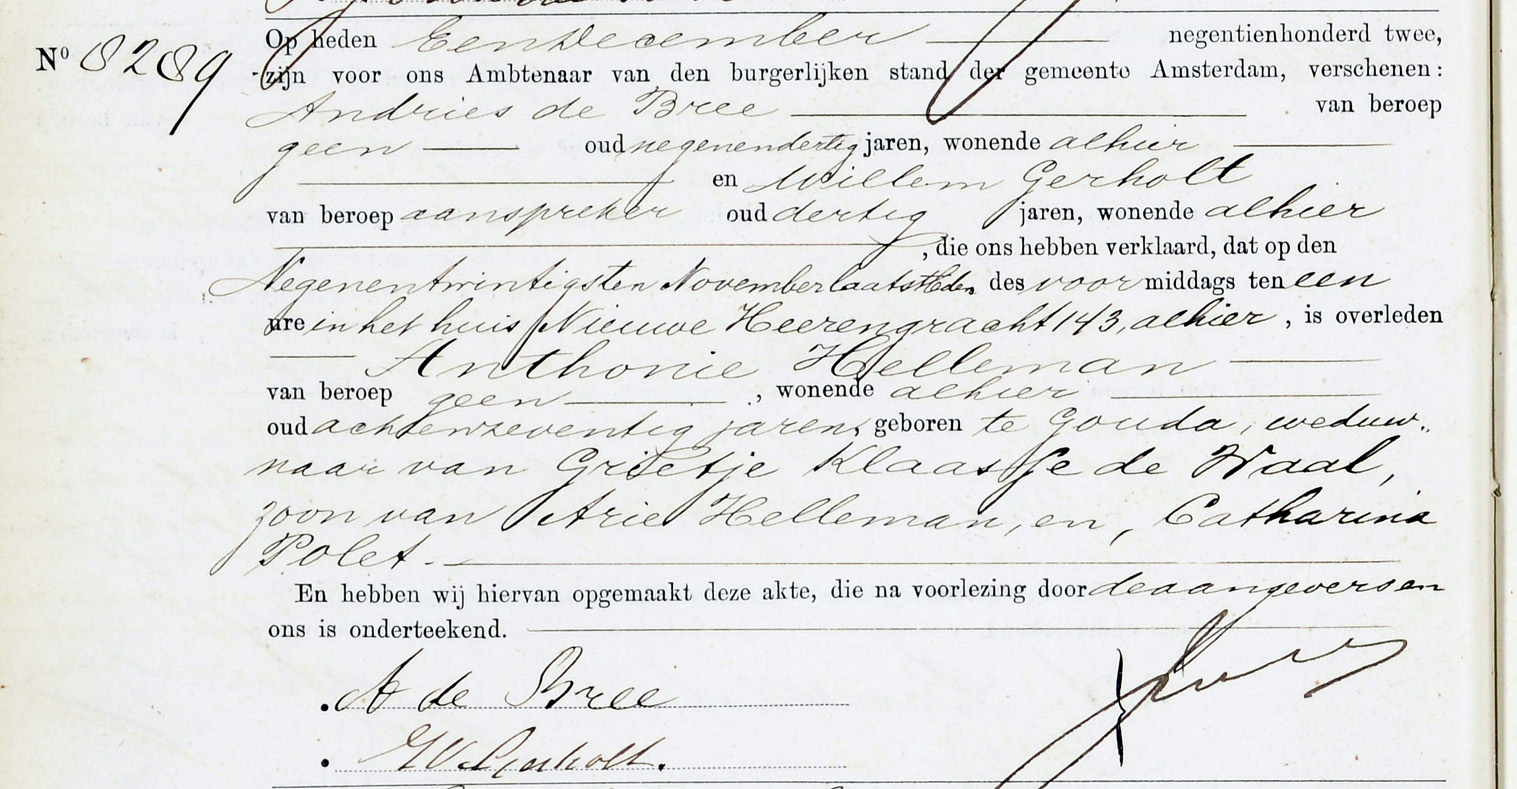 Nº 8289
Op heden Een December negentienhonderd twee,
zijn voor ons Ambtenaar van den burgerlijken stand der gemeente Amsterdam, verschenen:
Andries de Bree van beroep
geen oud negenendertig jaren, wonende alhier
en Willem Gerholt
van beroep aanspreker oud dertig jaren, wonende alhier
, die ons hebben verklaard, dat op den
Negenentwintigsten November laatstleden des voor middags ten een
ure in het huis Nieuwe Heerengracht 143, alhier, is overleden
Anthonie Helleman
van beroep geen, wonende alhier
oud achtenzeventig jaren, geboren te Gouda, weduw„
naar van Grietje Klaasse de Waal,
zoon van Arie Helleman, en, Catharina
Polet.
En hebben wij hiervan opgemaakt deze akte, die na voorlezing door de aangevers en
ons is onderteekend.
A de Bree
W. Gerholt.